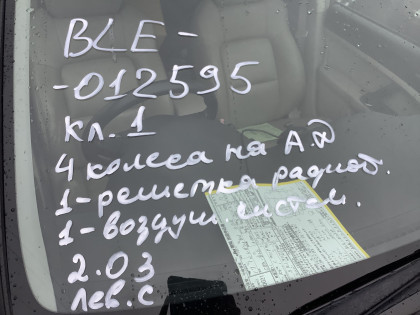 BLE-
-012595
кл. 1
4 колеса на А.Д
1-решетка радиат.
1-воздуш. систем.
2.03
Лев. С